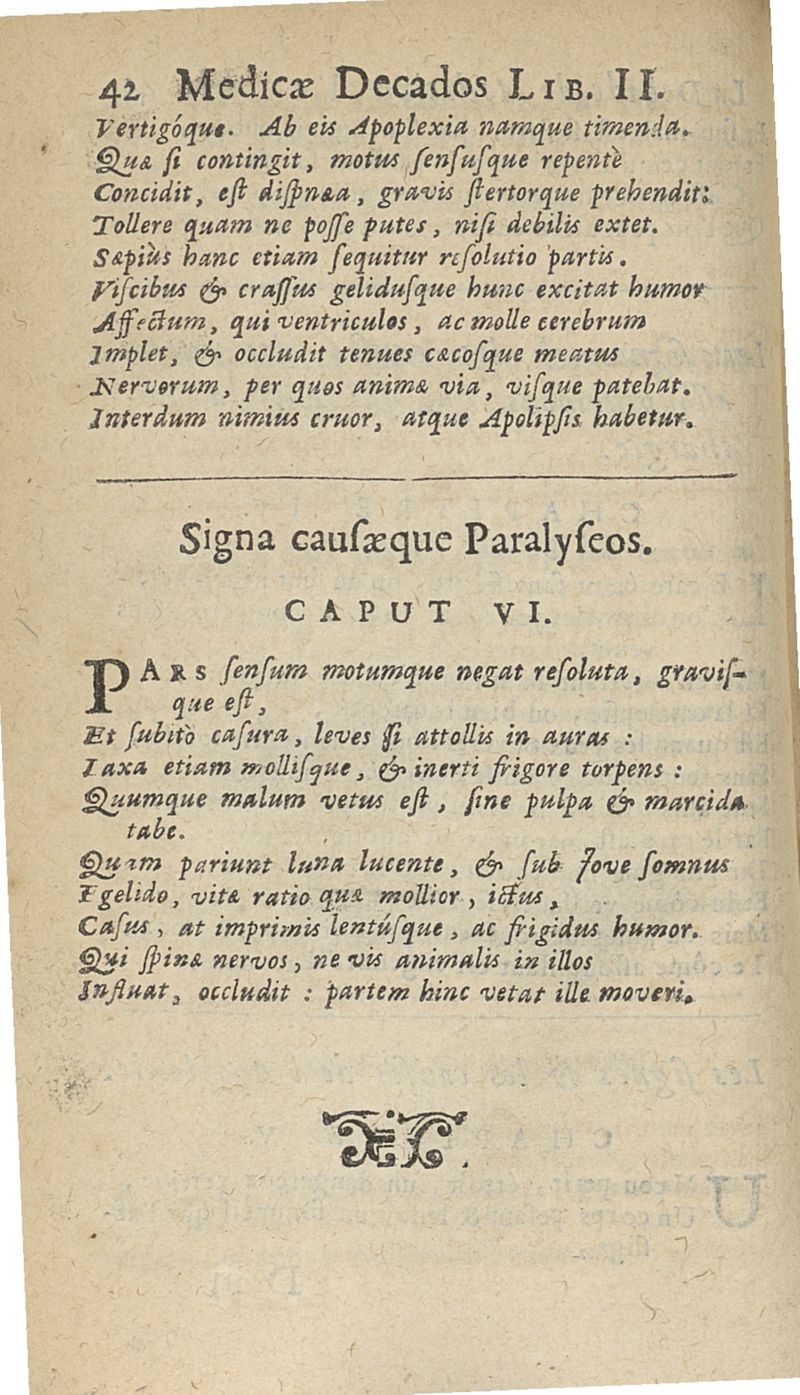 42 Medicæ Decados LIB. II.
Vertigóque. Ab eis Apoplexia namque timenda.
Quæ si contingit, motus sensusque repentè
Concidit, est dispnæa, gravis stertorque prehendit:
Tollere quam ne posse putes, nisi debilis extet.
Sæpiùs hanc etiam sequitur resolutio partis.
Viscibus & crassus gelidusque hunc excitat humor
Affectum, qui ventriculos, ac molle cerebrum
Implet, & occludit tenues cæcosque meatus
Nervorum, per quos animæ via, visque patebat.
Interdum nimius cruor, atque Apolipsis habetur.
Signa causæque Paralyseos.
CAPUT VI.
PARS sensum motumque negat resoluta, gravis-
que est,
Et subitò casura, leves si attollis in auras :
Laxa etiam mollisque, & inerti frigore torpens :
Quumque malum vetus est, sine pulpa & marcida
tabe.
Quam pariunt luna lucente, & sub Jove somnus
Egelido, vitæ ratio quæ mollior, ictus,
Casus, at imprimis lentúsque, ac frigidus humor.
Qui spinæ nervos, ne vis animalis in illos
Influat, occludit : partem hinc vetat ille moveri.